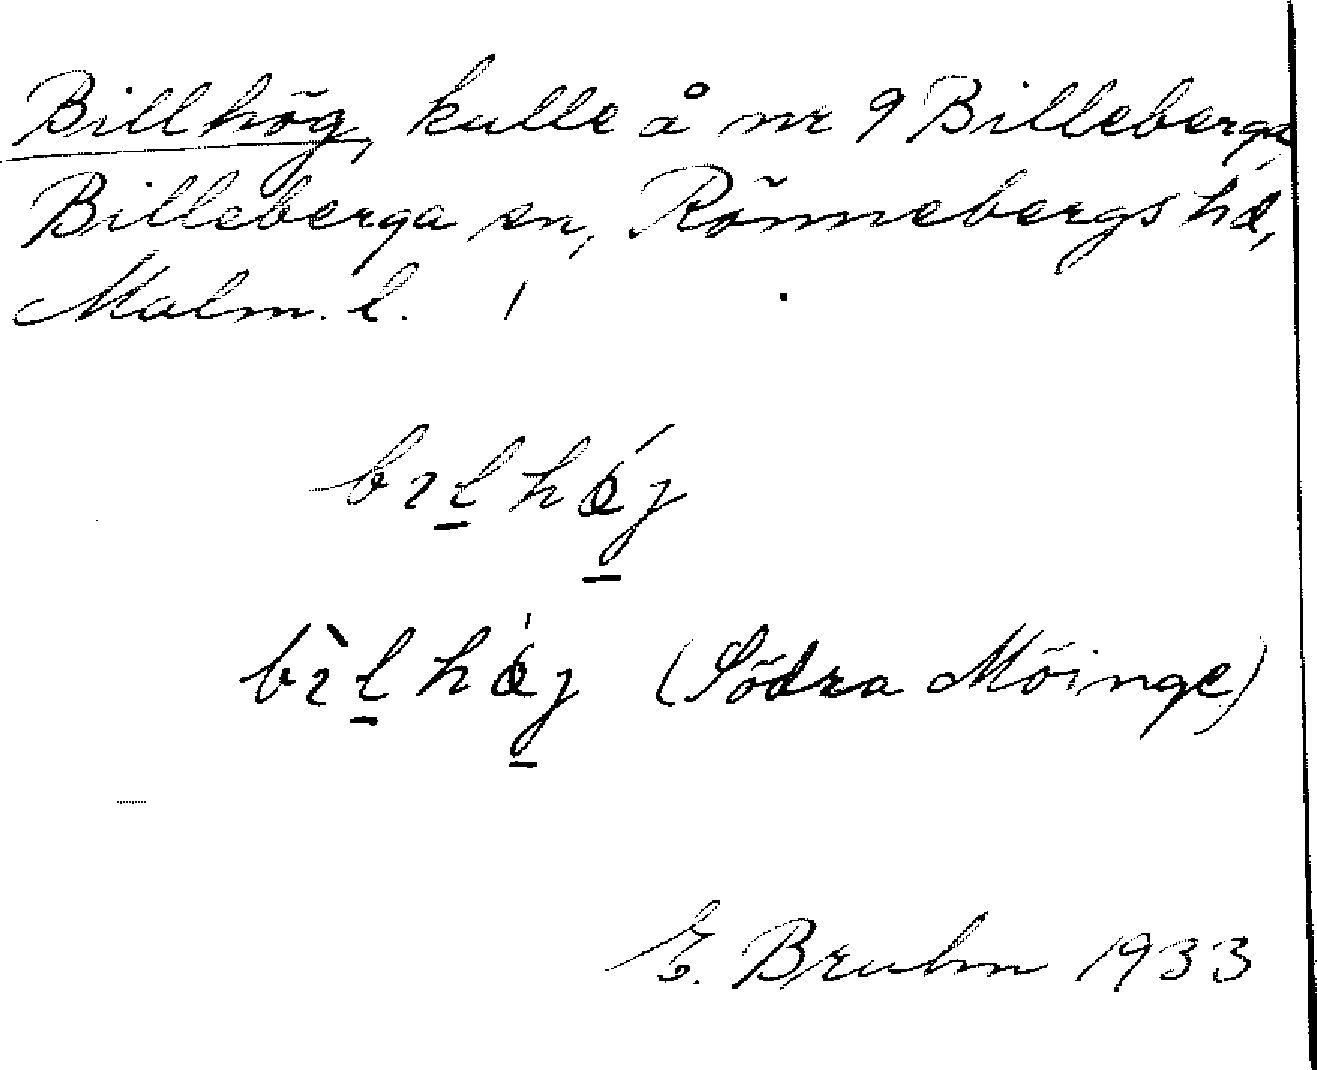 Billhög, kulle å nr 9 Billeberga
Billeberga sn, Rönnebergs hd,
Malm. l.
bılhǿj
bı̀lhǿj (Södra Möinge)
E. Bruhn 1933